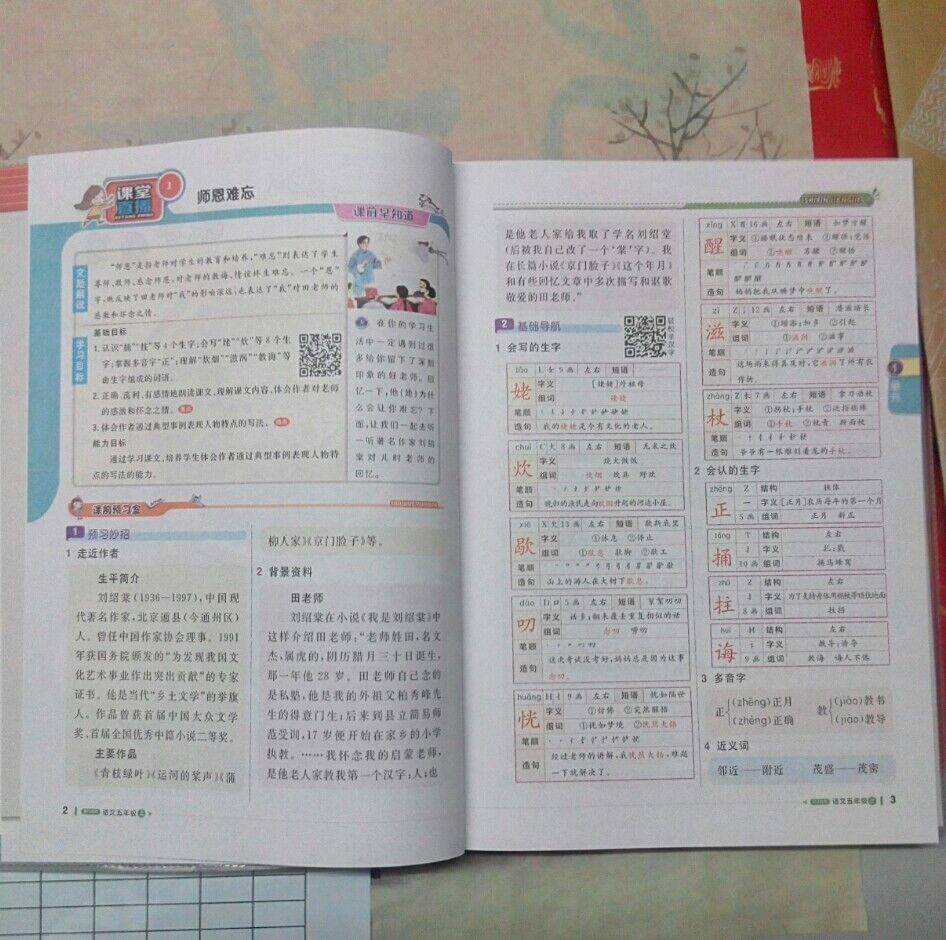 课堂直播
1
师恩难忘
课前早知道
文题解说
“师恩”是指老师对学生的教育和培养,“难忘”则表达了学生
尊师、敬师、感念师恩,对老师的教诲、情谊终生难忘。一个“恩”
字,既反映了田老师对“我”的影响深远,也表达了“我”对田老师的
感激和怀念之情。
学习目标
基础目标
由生字组成的词语。
2. 正确、流利、有感情地朗读课文,理解课文内容,体会作者对老师
的感激和怀念之情。
3. 体会作者通过典型事例表现人物特点的写法。
能力目标
通过学习课文,培养学生体会作者通过典型事例表现人物特
点的写法的能力。
在你的学习生
活中一定遇到过很
多给你留下了深刻
印象的好老师。回
忆一下,他(她)为什
么会让你难忘?下
面,让我们一起去听
一听著名作家刘绍
棠对儿时老师的
回忆。
课前预习室
1 预习妙招
1 走近作者
生平简介
刘绍棠(1936—1997),中国现
代著名作家,北京通县(今通州区)
人。曾任中国作家协会理事。1991
年获国务院颁发的“为发现我国文
化艺术事业作出突出贡献”的专家
证书。他是当代“乡土文学”的举旗
人。作品曾获首届中国大众文学
奖、首届全国优秀中篇小说二等奖。
主要作品
《青枝绿叶》《运河的桨声》《蒲
柳人家》《京门脸子》等。
2 背景资料
田老师
刘绍棠在小说《我是刘绍棠》中
这样介绍田老师:“老师姓田,名文
杰,属虎的,阴历腊月三十日诞生,
那一年他 28 岁。田老师自己念的
是私塾,他是我的外祖父柏秀峰先
生的得意门生;后来到县立简易师
范受训,17 岁便开始在家乡的小学
执教。……我怀念我的启蒙老师,
是他老人家教我第一个汉字;人;也
2
语文五年级 上
是他老人家给我取了学名刘绍堂
(后被我自己改了一个‘棠’字)。我
在长篇小说《京门脸子》《这个年月》
和有些回忆文章中多次描写和讴歌
敬爱的田老师。”
2 基础导航
轻松学汉字
1 会写的生字
lǎo 姥 L 女 9 画 左右 短语
字义 [姥姥]外祖母
组词 姥姥
笔顺
造句 我的姥姥是个有文化的老人。
chuī 炊 C 火 8 画 左右 短语 无米之炊
字义 烧火做饭
组词 炊烟 炊具 野炊
笔顺
造句 晚归的渔民走向炊烟升起的河边小屋。
xiē 歇 X 欠 13 画 左右 短语 歇斯底里
字义 ①休息 ②停止
组词 ①歇息 歇脚 ②歇工
笔顺
造句 山上的游人在大树下歇息。
dāo 叨 D 口 5 画 左右 短语 絮絮叨叨
字义 话多;翻来覆去重复相似的话
组词 念叨 唠叨
笔顺
造句 这次考试没考好,妈妈总是因为这事
念叨。
huǎng 恍 H 忄 9 画 左右 短语 恍如隔世
字义 ①仿佛 ②突然醒悟
组词 ①恍如梦境 ②恍然大悟
笔顺
造句 经过老师的讲解,我恍然大悟,难题
一下就解决了。
xǐng 醒 X 酉 16 画 左右 短语 如梦方醒
字义 ①睡眠状态结束 ②醒悟;觉悟
组词 ①唤醒 苏醒 ②醒悟
笔顺
造句 妈妈把我从睡梦中唤醒了。
zī 滋 Z 氵 12 画 左右 短语
字义 ①增添;加多 ②引起
组词 ①滋润 ②滋事
笔顺
造句 这场雨来得真及时,它滋润了所有农
作物。
zhàng 杖 Z 木 7 画 左右 短语
字义 ①拐杖;手杖
组词 ①手杖 ②杖责 擀面杖
笔顺
造句 爷爷有一根雕刻着龙的手杖。
2 会认的生字
zhēng 正 Z 结构 独体
一 字义 [正月]农历每年的第一个月
5 画 组词 正月 新正
tǒng 捅 T 结构 左右
扌 字义 扎;戳
10 画 组词 捅马蜂窝
zhǔ 拄 Z 结构 左右
扌 字义 为了支持身体用棍杖等顶住地面
组词 拄拐
huì 诲 H 结构 左右
讠 字义 教导;诱导
9 画 组词 教诲 诲人不倦
3 多音字
正 (zhēng)正月 (zhèng)正确 教 (jiāo)教书 (jiào)教导
4 近义词
邻近——附近 茂盛——茂密
语文五年级 上
3